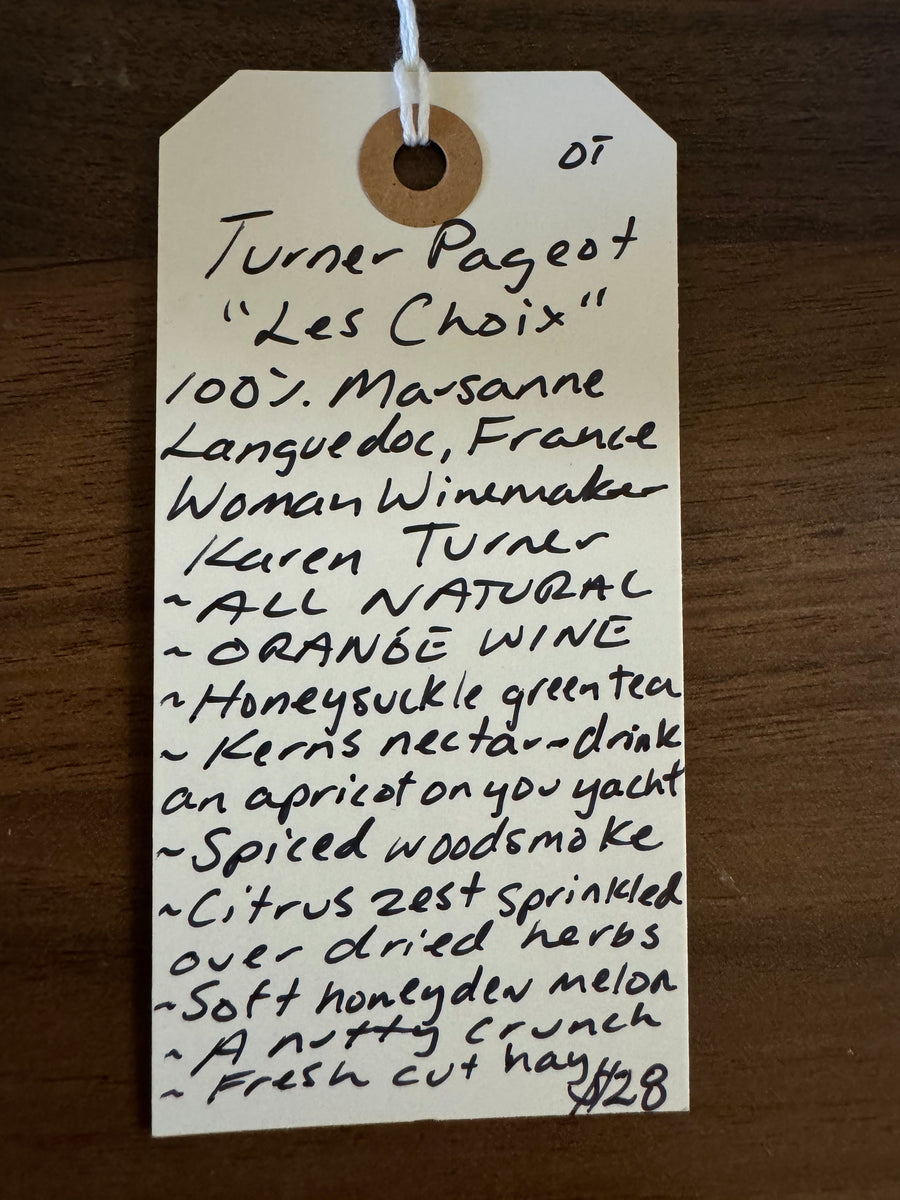 OT
Turner Pageot
"Les Choix"
100%. Marsanne
Languedoc, France
Woman Winemaker
Karen Turner
~ALL NATURAL
~ORANGE WINE
~Honeysuckle green tea
~Kerns nectar~drink
an apricot on you yacht
~Spiced woodsmoke
~Citrus zest sprinkled
over dried herbs
~Soft honeydew melon
~A nutty crunch
~Fresh cut hay
$28